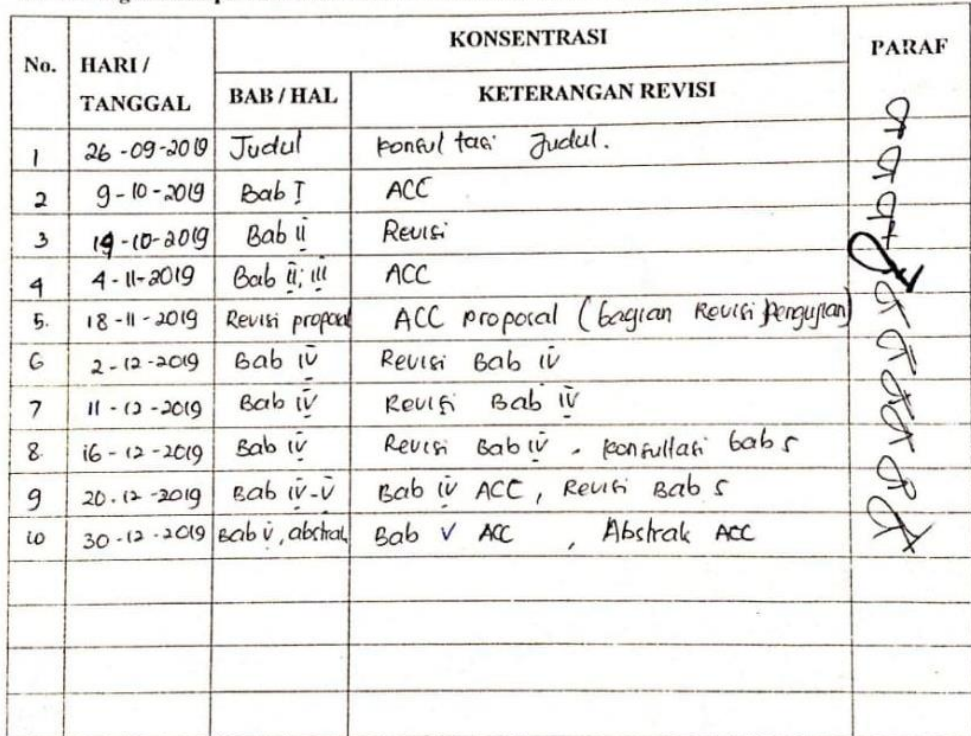 KONSENTRASI
PARAF
No. HARI / TANGGAL BAB / HAL KETERANGAN REVISI
1 26-09-2019 Judul Konsultasi Judul.
2 9-10-2019 Bab I ACC
3 14-10-2019 Bab ii Revisi
4 4-11-2019 Bab ii, iii ACC
5. 18-11-2019 Revisi proposal ACC proposal (bagian Revisi Pengujian)
6 2-12-2019 Bab iv Revisi Bab iv
7 11-12-2019 Bab iv Revisi Bab iv
8. 16-12-2019 Bab iv Revisi Bab iv, konsultasi bab 5
9 20-12-2019 Bab iv-v Bab iv ACC, Revisi Bab 5
10 30-12-2019 Bab v, abstrak Bab V ACC, Abstrak ACC